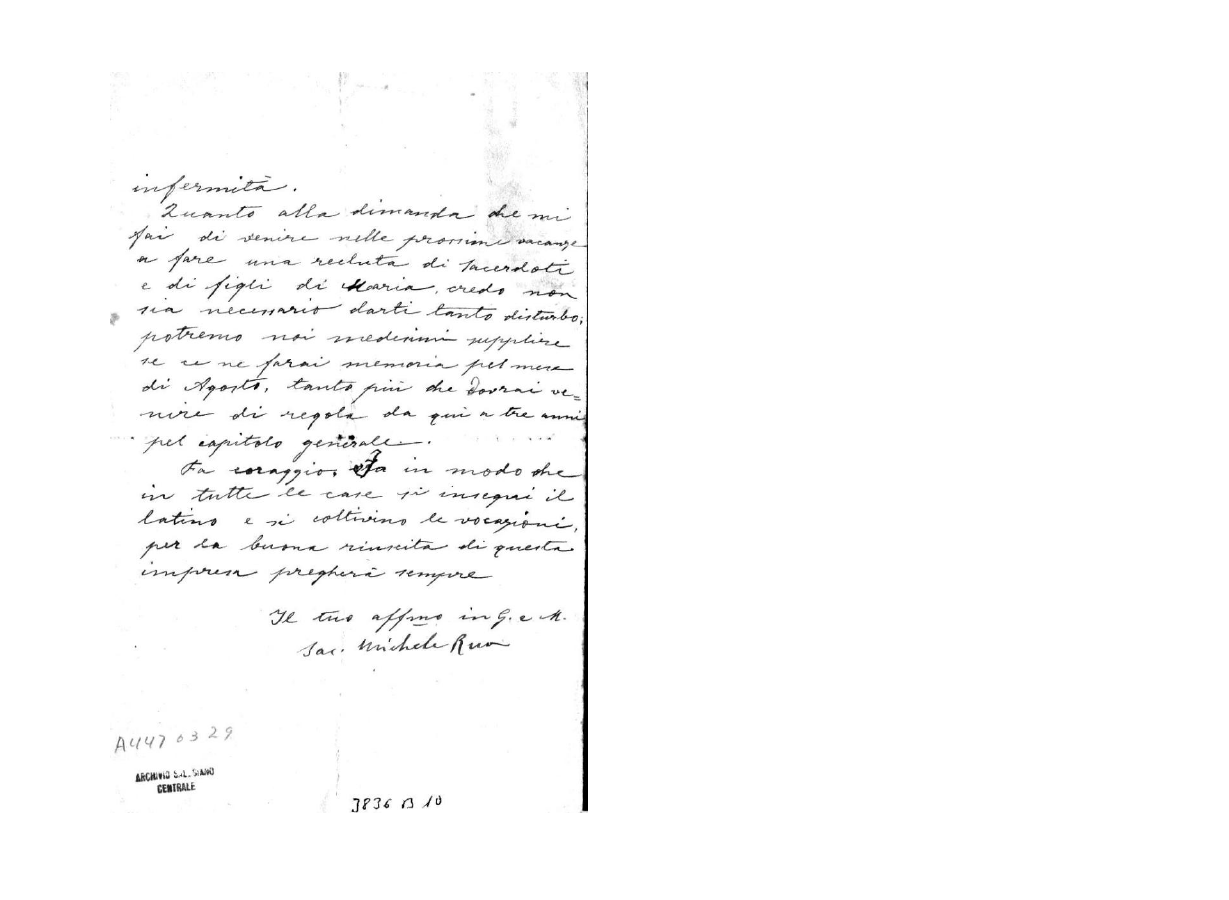 infermità.
Quanto alla dimanda che mi
fai di venire nelle prossime vacanze
a fare una recluta di Sacerdoti
e di figli di Maria, credo non
sia necessario darti tanto disturbo;
potremo noi medesimi supplire
se ce ne farai memoria pel mese
di Agosto, tanto più che dovrai ve=
nire di regola da qui a tre anni
pel capitolo generale.
Fa coraggio, Fa in modo che
in tutte le case si insegni il
latino e si coltivino le vocazioni,
per la buona riuscita di questa
impresa pregherà sempre
Il tuo affmo in G. e M.
Sac. Michele Rua
A4470329
ARCHIVIO SALESIANO
CENTRALE
3836 B 10